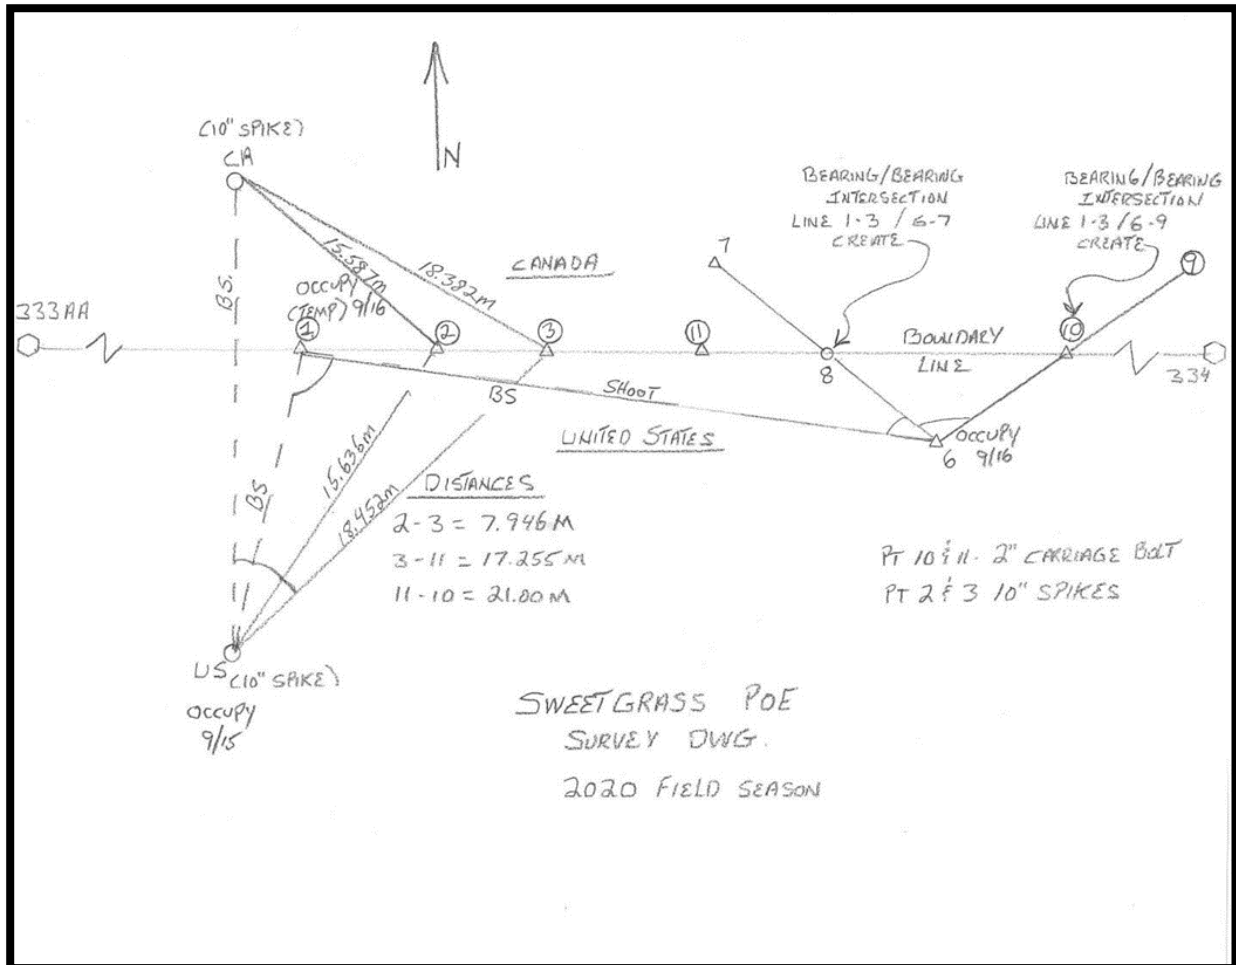 (10" SPIKE)
CA
N
BEARING/BEARING
INTERSECTION
LINE 1-3 / 6-7
CREATE
BEARING/BEARING
INTERSECTION
LINE 1-3 / 6-9
CREATE
7
9
15.587m
18.382m
CANADA
BS.
OCCUPY
(TEMP) 9/16
333AA
1
2
3
11
10
BOUNDARY
LINE
8
334
BS
SHOOT
UNITED STATES
OCCUPY
6 9/16
15.636m
18.452m
BS
DISTANCES
2-3 = 7.946 M
3-11 = 17.255 M
11-10 = 21.00 M
PT 10 & 11 - 2" CARRIAGE BOLT
PT 2 & 3 10" SPIKES
US (10" SPIKE)
OCCUPY
9/15
SWEETGRASS POE
SURVEY DWG.
2020 FIELD SEASON